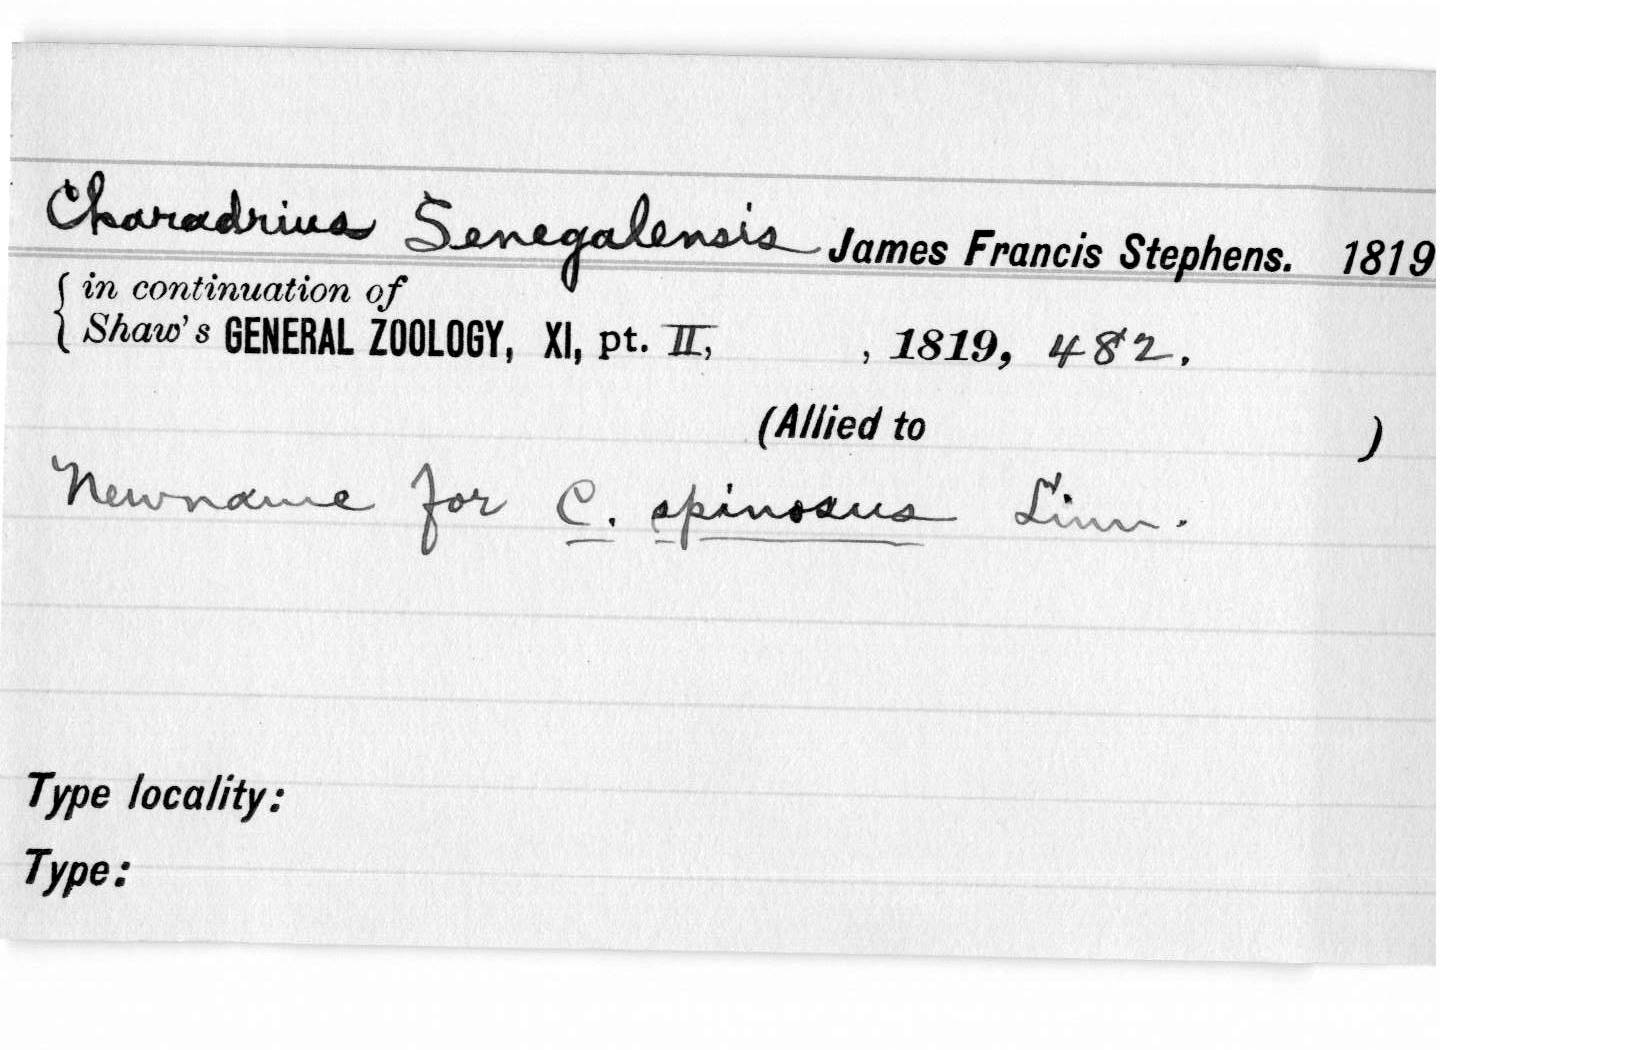 Charadrius Senegalensis James Francis Stephens. 1819
in continuation of
Shaw's GENERAL ZOOLOGY, XI, pt. II, , 1819, 482.
(Allied to )
Newname for C. spinosus Linn.
Type locality:
Type: